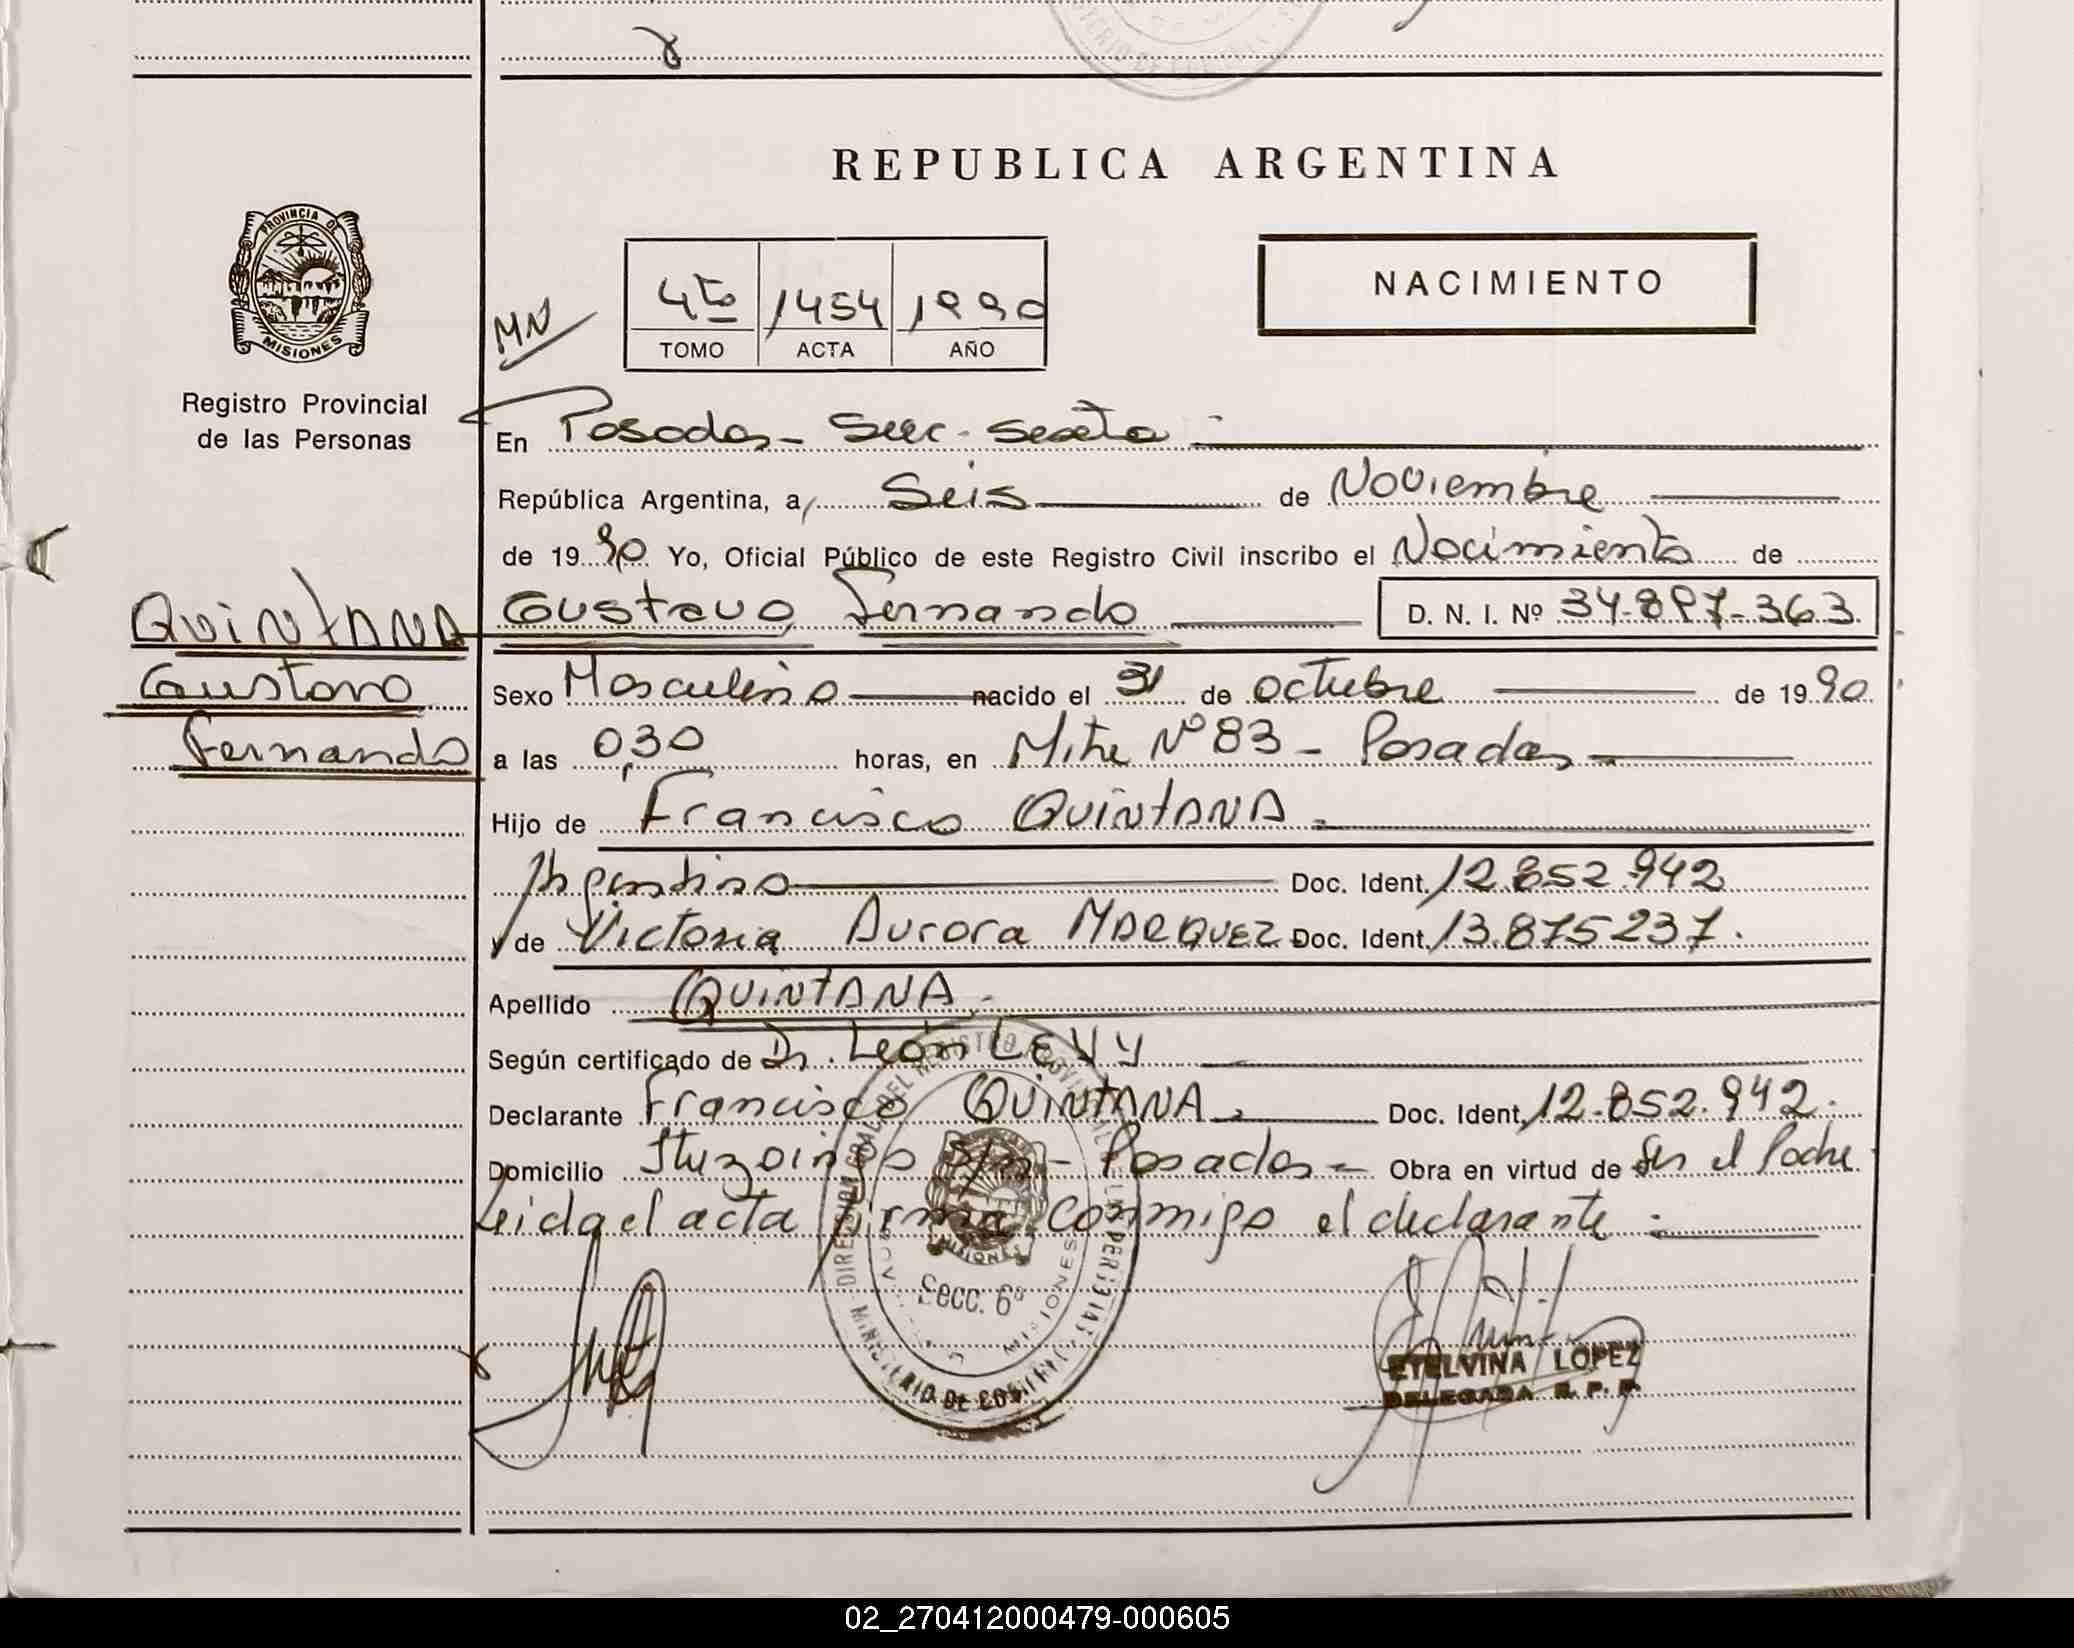 REPUBLICA ARGENTINA
PROVINCIA DE
MISIONES
Registro Provincial
de las Personas
MN
4to 1454 1990
TOMO ACTA AÑO
NACIMIENTO
En Posadas - Secc. Sexta
República Argentina, a Seis de Noviembre
de 1990 Yo, Oficial Público de este Registro Civil inscribo el Nacimiento de
QUINTANA Gustavo Fernando D. N. I. Nº 34.897.363
Gustavo
Fernando
Sexo Masculino nacido el 31 de octubre de 1990
a las 0,30 horas, en Mitre Nº 83 - Posadas
Hijo de Francisco QUINTANA
Argentino Doc. Ident. 12.852.942
y de Victoria Aurora MARQUEZ Doc. Ident. 13.875237.
Apellido QUINTANA.
Según certificado de Dr. León LEVY
Declarante Francisco QUINTANA Doc. Ident. 12.852.942.
Domicilio Ituzaingo s/n - Posadas - Obra en virtud de Ser el Padre
Leida el acta firma conmigo el declarante.
MISIONES
Secc. 6ª
ETELVINA LOPEZ
DELEGADA R. P. P.
02_270412000479-000605